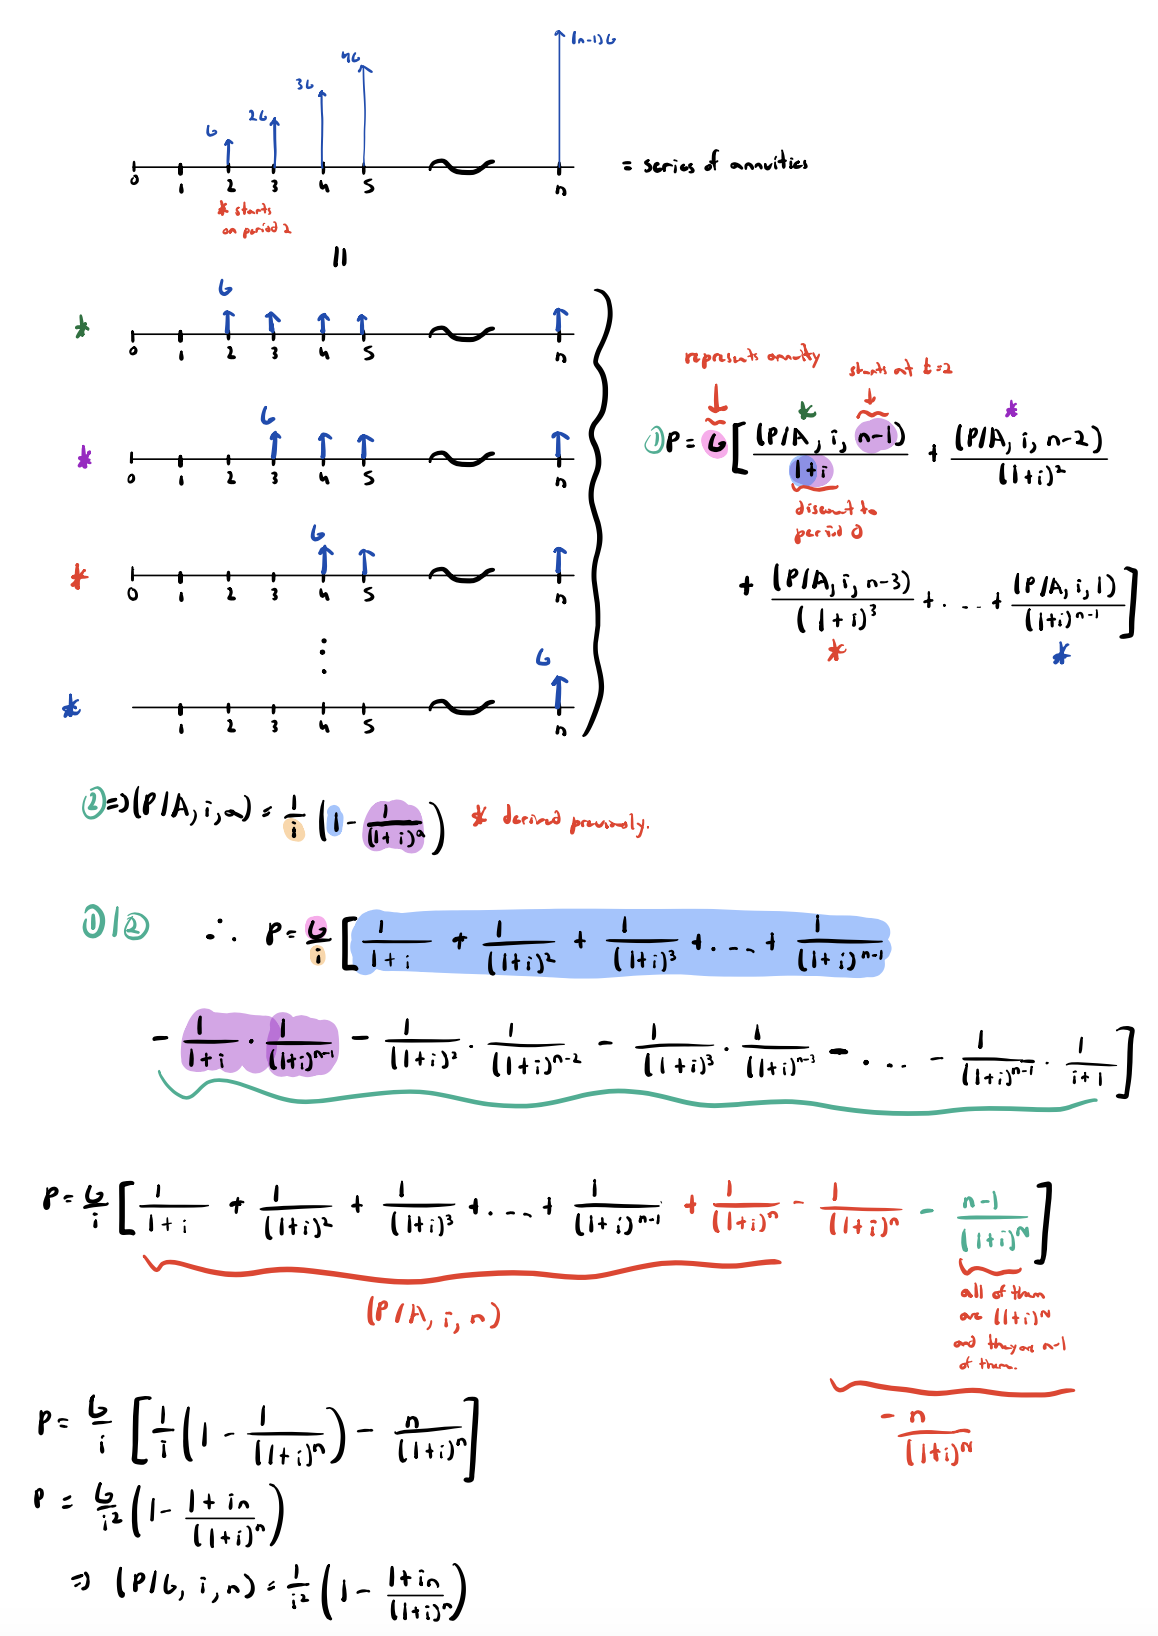 G 2G 3G 4G (n-1)G
0 1 2 3 4 5 n
= series of annuities
* starts
on period 2
=
G
* 0 1 2 3 4 5 n
G
* 0 1 2 3 4 5 n
G
* 0 1 2 3 4 5 n
⋮
G
* 1 2 3 4 5 n
represents annuity
starts at t=2
* *
① P = G [ (P/A, i, n-1)/(1+i) + (P/A, i, n-2)/(1+i)²
discount to
period 0
+ (P/A, i, n-3)/(1+i)³ + .... + (P/A, i, 1)/(1+i)ⁿ⁻¹ ]
* *
② => (P/A, i, a) = 1/i (1 - 1/(1+i)ᵃ) * derived previously.
①/② ∴ P = G/i [ 1/(1+i) + 1/(1+i)² + 1/(1+i)³ + .... + 1/(1+i)ⁿ⁻¹
- 1/(1+i) · 1/(1+i)ⁿ⁻¹ - 1/(1+i)² · 1/(1+i)ⁿ⁻² - 1/(1+i)³ · 1/(1+i)ⁿ⁻³ - .... - 1/(1+i)ⁿ⁻¹ · 1/(i+1) ]
P = G/i [ 1/(1+i) + 1/(1+i)² + 1/(1+i)³ + .... + 1/(1+i)ⁿ⁻¹ + 1/(1+i)ⁿ - 1/(1+i)ⁿ - (n-1)/(1+i)ᴺ ]
(P/A, i, n)
all of them
are (1+i)ᴺ
and they are n-1
of them.
- n/(1+i)ᴺ
P = G/i [ 1/i (1 - 1/(1+i)ⁿ) - n/(1+i)ⁿ ]
P = G/i² (1 - (1+in)/(1+i)ⁿ)
=> (P/G, i, n) = 1/i² (1 - (1+in)/(1+i)ⁿ)